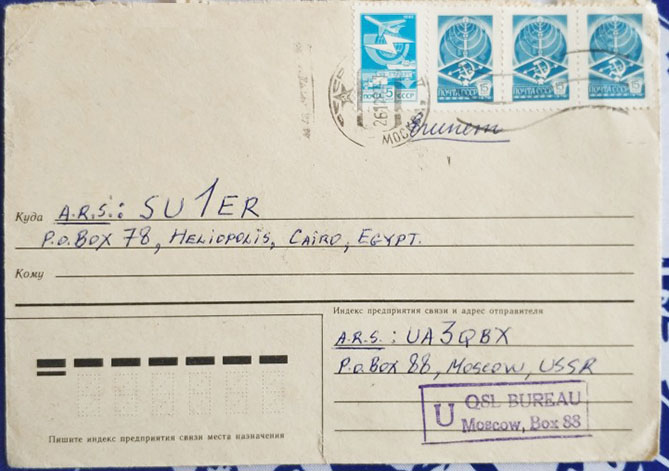 5
ПОЧТА СССР
ПОЧТА СССР
ПОЧТА СССР
ПОЧТА СССР
МОСКВА
Египет
Куда A.R.S.: SU1ER
P.O.BOX 78, HELIOPOLIS, CAIRO, EGYPT.
Кому
Индекс предприятия связи и адрес отправителя
A.R.S.: UA3QBX
P.O.BOX 88, MOSCOW, USSR
U QSL BUREAU
Moscow, Box 88
Пишите индекс предприятия связи места назначения